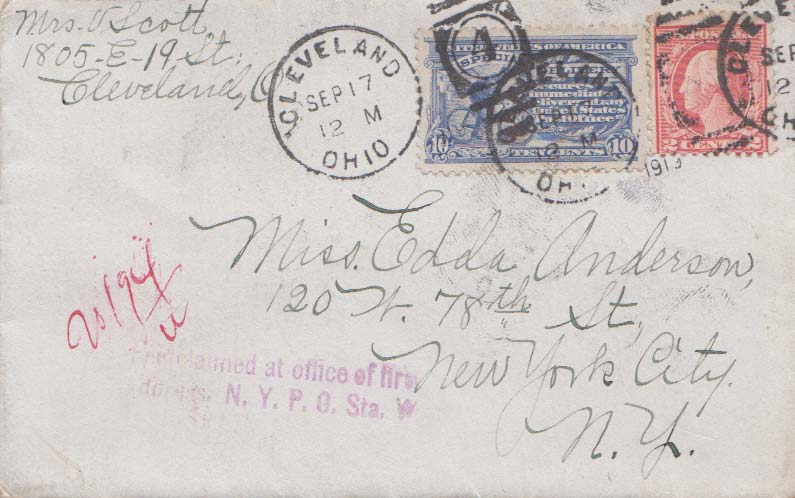 Mrs. V Scott,
1805-E-19 St.
Cleveland, O
CLEVELAND
SEP 17
12 M
OHIO
UNITED STATES OF AMERICA
SPECI
Secures
Immediate
Delivery at any
United States
Post Office
10 TEN CENTS 10
OH
U.S. POSTAGE
2 CENTS 2
CLEVE
SEP
12
OHI
1913
Miss. Edda Anderson,
120 W. 78th St,
New York City.
N.Y.
claimed at office of firs
N. Y. P. O. Sta. W